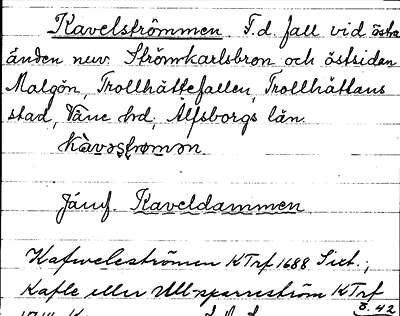 Kavelströmmen. F.d. fall vid östra
änden nuv. Strömkarlsbron och östsidan
Malgön, Trollhättefallen, Trollhättans
stad, Väne hd, Älfsborgs län.
Jämf. Kaveldammen
Kafweleströmen KTrf 1688 Sixt.;
Kafle eller Ull-sparreström KTrf
5.42